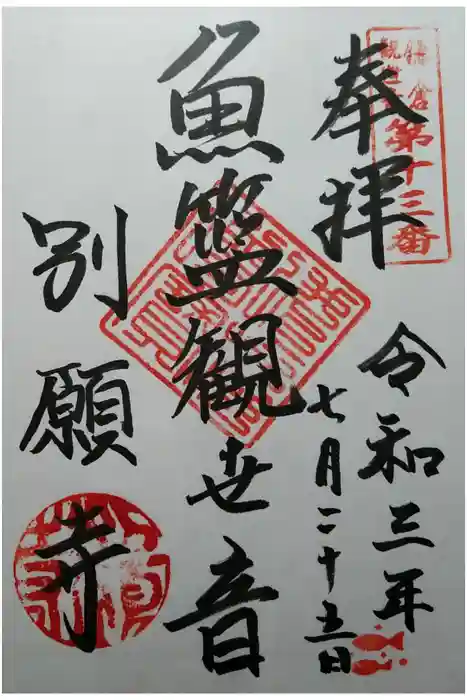 鎌倉
観世音
第十三番
奉拝
令和三年
七月二十五日
魚籃観世音
別願寺